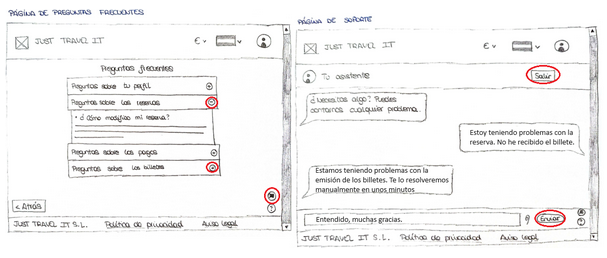 PÁGINA DE PREGUNTAS FRECUENTES
JUST TRAVEL IT
€
Preguntas frecuentes
Preguntas sobre tu perfil
Preguntas sobre las reservas
¿Cómo modifico mi reserva?
Preguntas sobre los pagos
Preguntas sobre los billetes
< ATRÁS
?
JUST TRAVEL IT S.L. Política de privacidad Aviso legal
PÁGINA DE SOPORTE
JUST TRAVEL IT
€
Tu asistente
Salir
¿Necesitas algo? Puedes
contarnos cualquier problema
Estoy teniendo problemas con la
reserva. No he recibido el billete.
Estamos teniendo problemas con la
emisión de los billetes. Te lo resolveremos
manualmente en unos minutos
Entendido, muchas gracias.
Enviar
?
JUST TRAVEL IT S.L. Política de privacidad Aviso legal